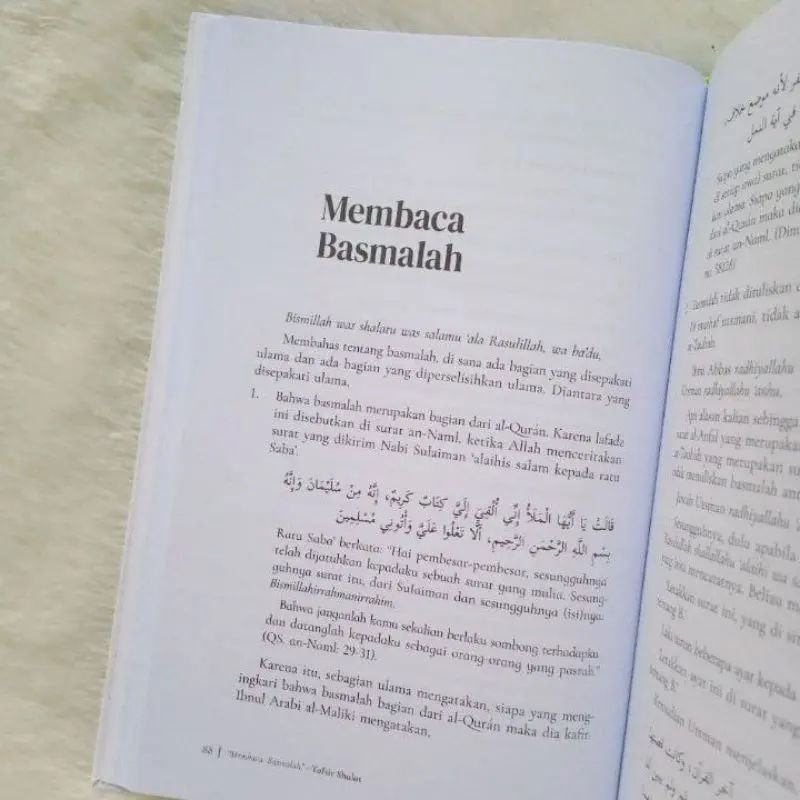 Membaca
Basmalah
Bismillah was shalatu was salamu 'ala Rasulillah, wa ba'du,
Membahas tentang basmalah, di sana ada bagian yang disepakati
ulama dan ada bagian yang diperselisihkan ulama. Diantara yang
disepakati ulama,
1. Bahwa basmalah merupakan bagian dari al-Qurán. Karena lafadz
ini disebutkan di surat an-Naml, ketika Allah menceritakan
surat yang dikirim Nabi Sulaiman 'alaihis salam kepada ratu
Saba'.
قَالَتْ يَا أَيُّهَا الْمَلَأُ إِنِّي أُلْقِيَ إِلَيَّ كِتَابٌ كَرِيمٌ، إِنَّهُ مِنْ سُلَيْمَانَ وَإِنَّهُ
بِسْمِ اللَّهِ الرَّحْمَنِ الرَّحِيمِ، أَلَّا تَعْلُوا عَلَيَّ وَأْتُونِي مُسْلِمِينَ
Ratu Saba' berkata: "Hai pembesar-pembesar, sesungguhnya
telah dijatuhkan kepadaku sebuah surat yang mulia. Sesung-
guhnya surat itu, dari Sulaiman dan sesungguhnya (isi)nya:
Bismillahirrahmanirrahim.
Bahwa janganlah kamu sekalian berlaku sombong terhadapku
dan datanglah kepadaku sebagai orang-orang yang pasrah."
(QS. an-Naml: 29-31).
Karena itu, sebagian ulama mengatakan, siapa yang meng-
ingkari bahwa basmalah bagian dari al-Qurán maka dia kafir.
Ibnul Arabi al-Maliki mengatakan,
88 | "Membaca Basmalah" - Tafsir Shalat
لأنه موضع خلاف،
في آية النمل
Siapa yang mengatakan
di setiap awal surat, ti
dari al-Qurán maka dia
surat an-Naml. (Dim
Basmalah tidak dituliskan
Di mushaf utsmani, tidak a
at-Taubah.
Ibnu Abbas radhiyallahu
Utsman radhiyallahu 'anhu,
Apa alasan kalian sehingga
surat al-Anfal yang merupakan
at-Taubah yang merupakan su
tidak menuliskan basmalah ant
Jawab Utsman radhiyallahu
Sesungguhnya, dulu apabila
Rasulullah shallallahu 'alaihi wa s
yang bisa mencatatnya. Beliau m
surat ini, yang di sit
tentang B."
beberapa ayat kepada
ayat ini di surat yang
tentang B."
Kemudian Utsman menjelaskan,
آخر القرآن، وكانت